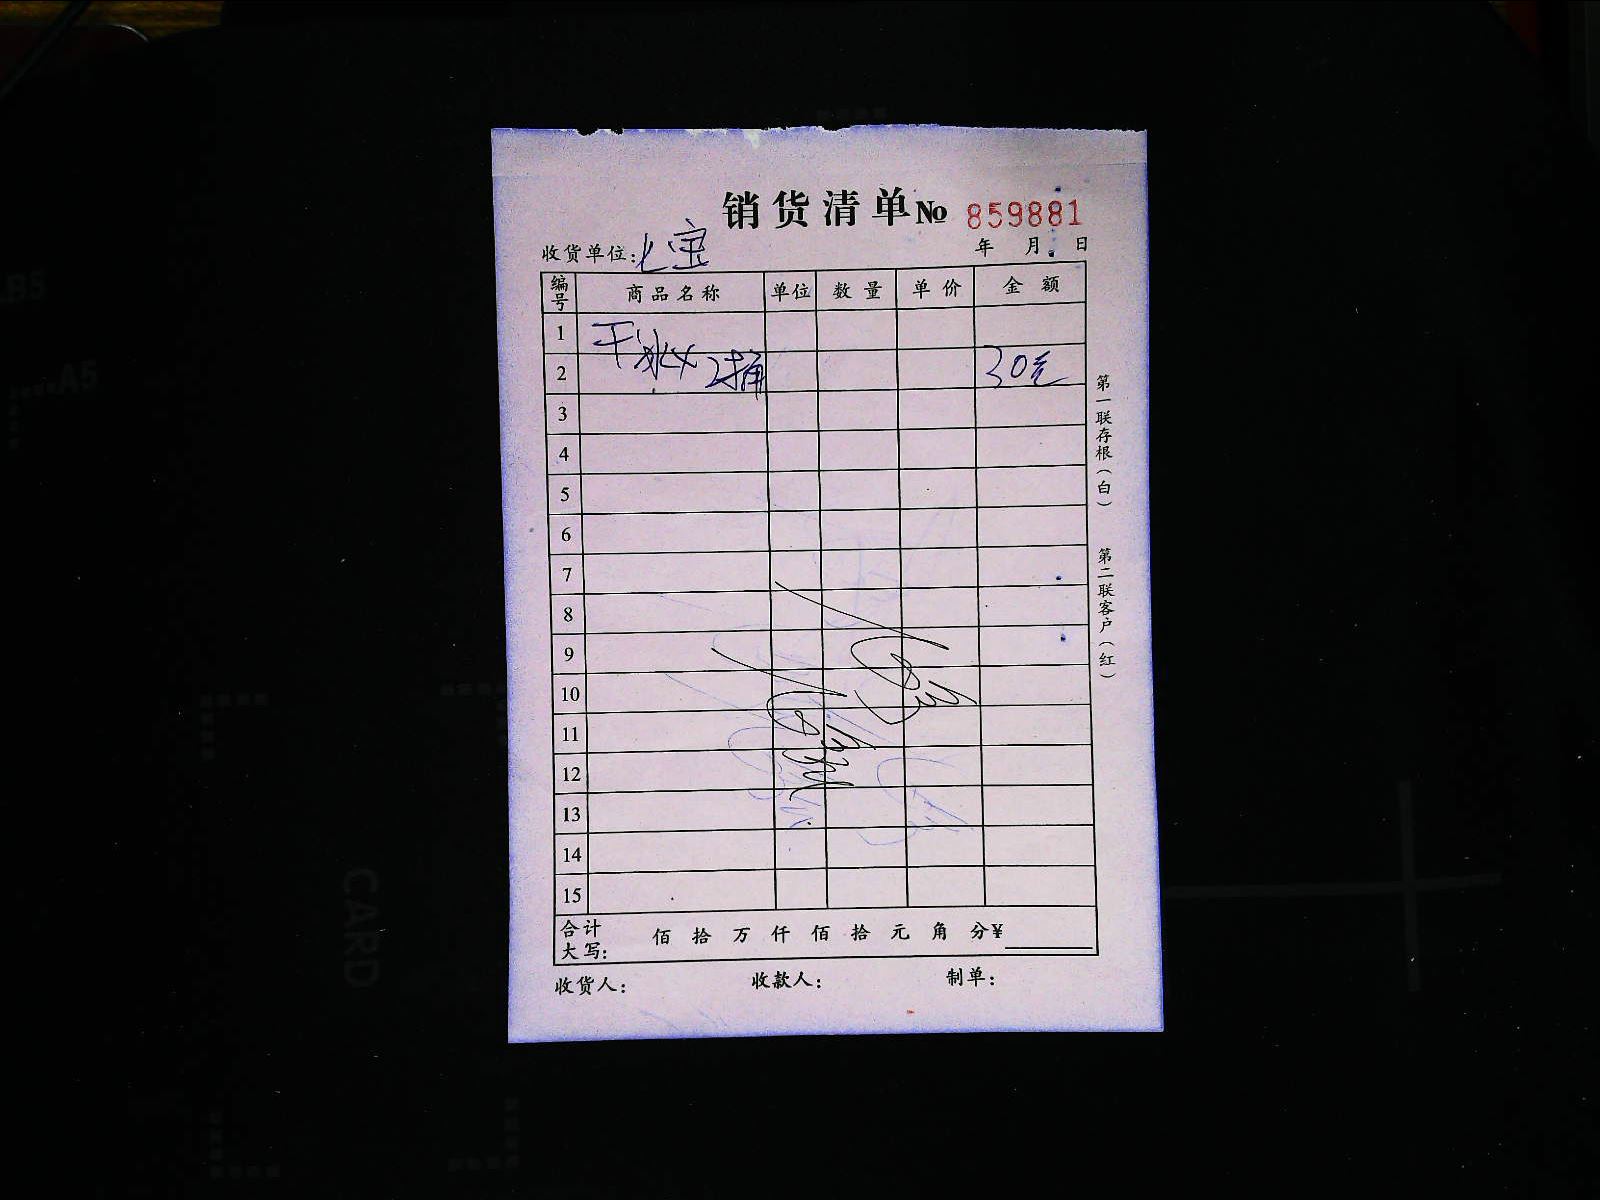 销货清单 № 859881
收货单位：七宝 年 月 日
编号 商品名称 单位 数量 单价 金额
1 干冰
2 2桶 30元
3
4
5
6
7
8
9
10
11
12
13
14
15
合计大写： 佰 拾 万 仟 佰 拾 元 角 分 ¥
收货人： 收款人： 制单：
第一联存根（白） 第二联客户（红）
CARD
A5
B5